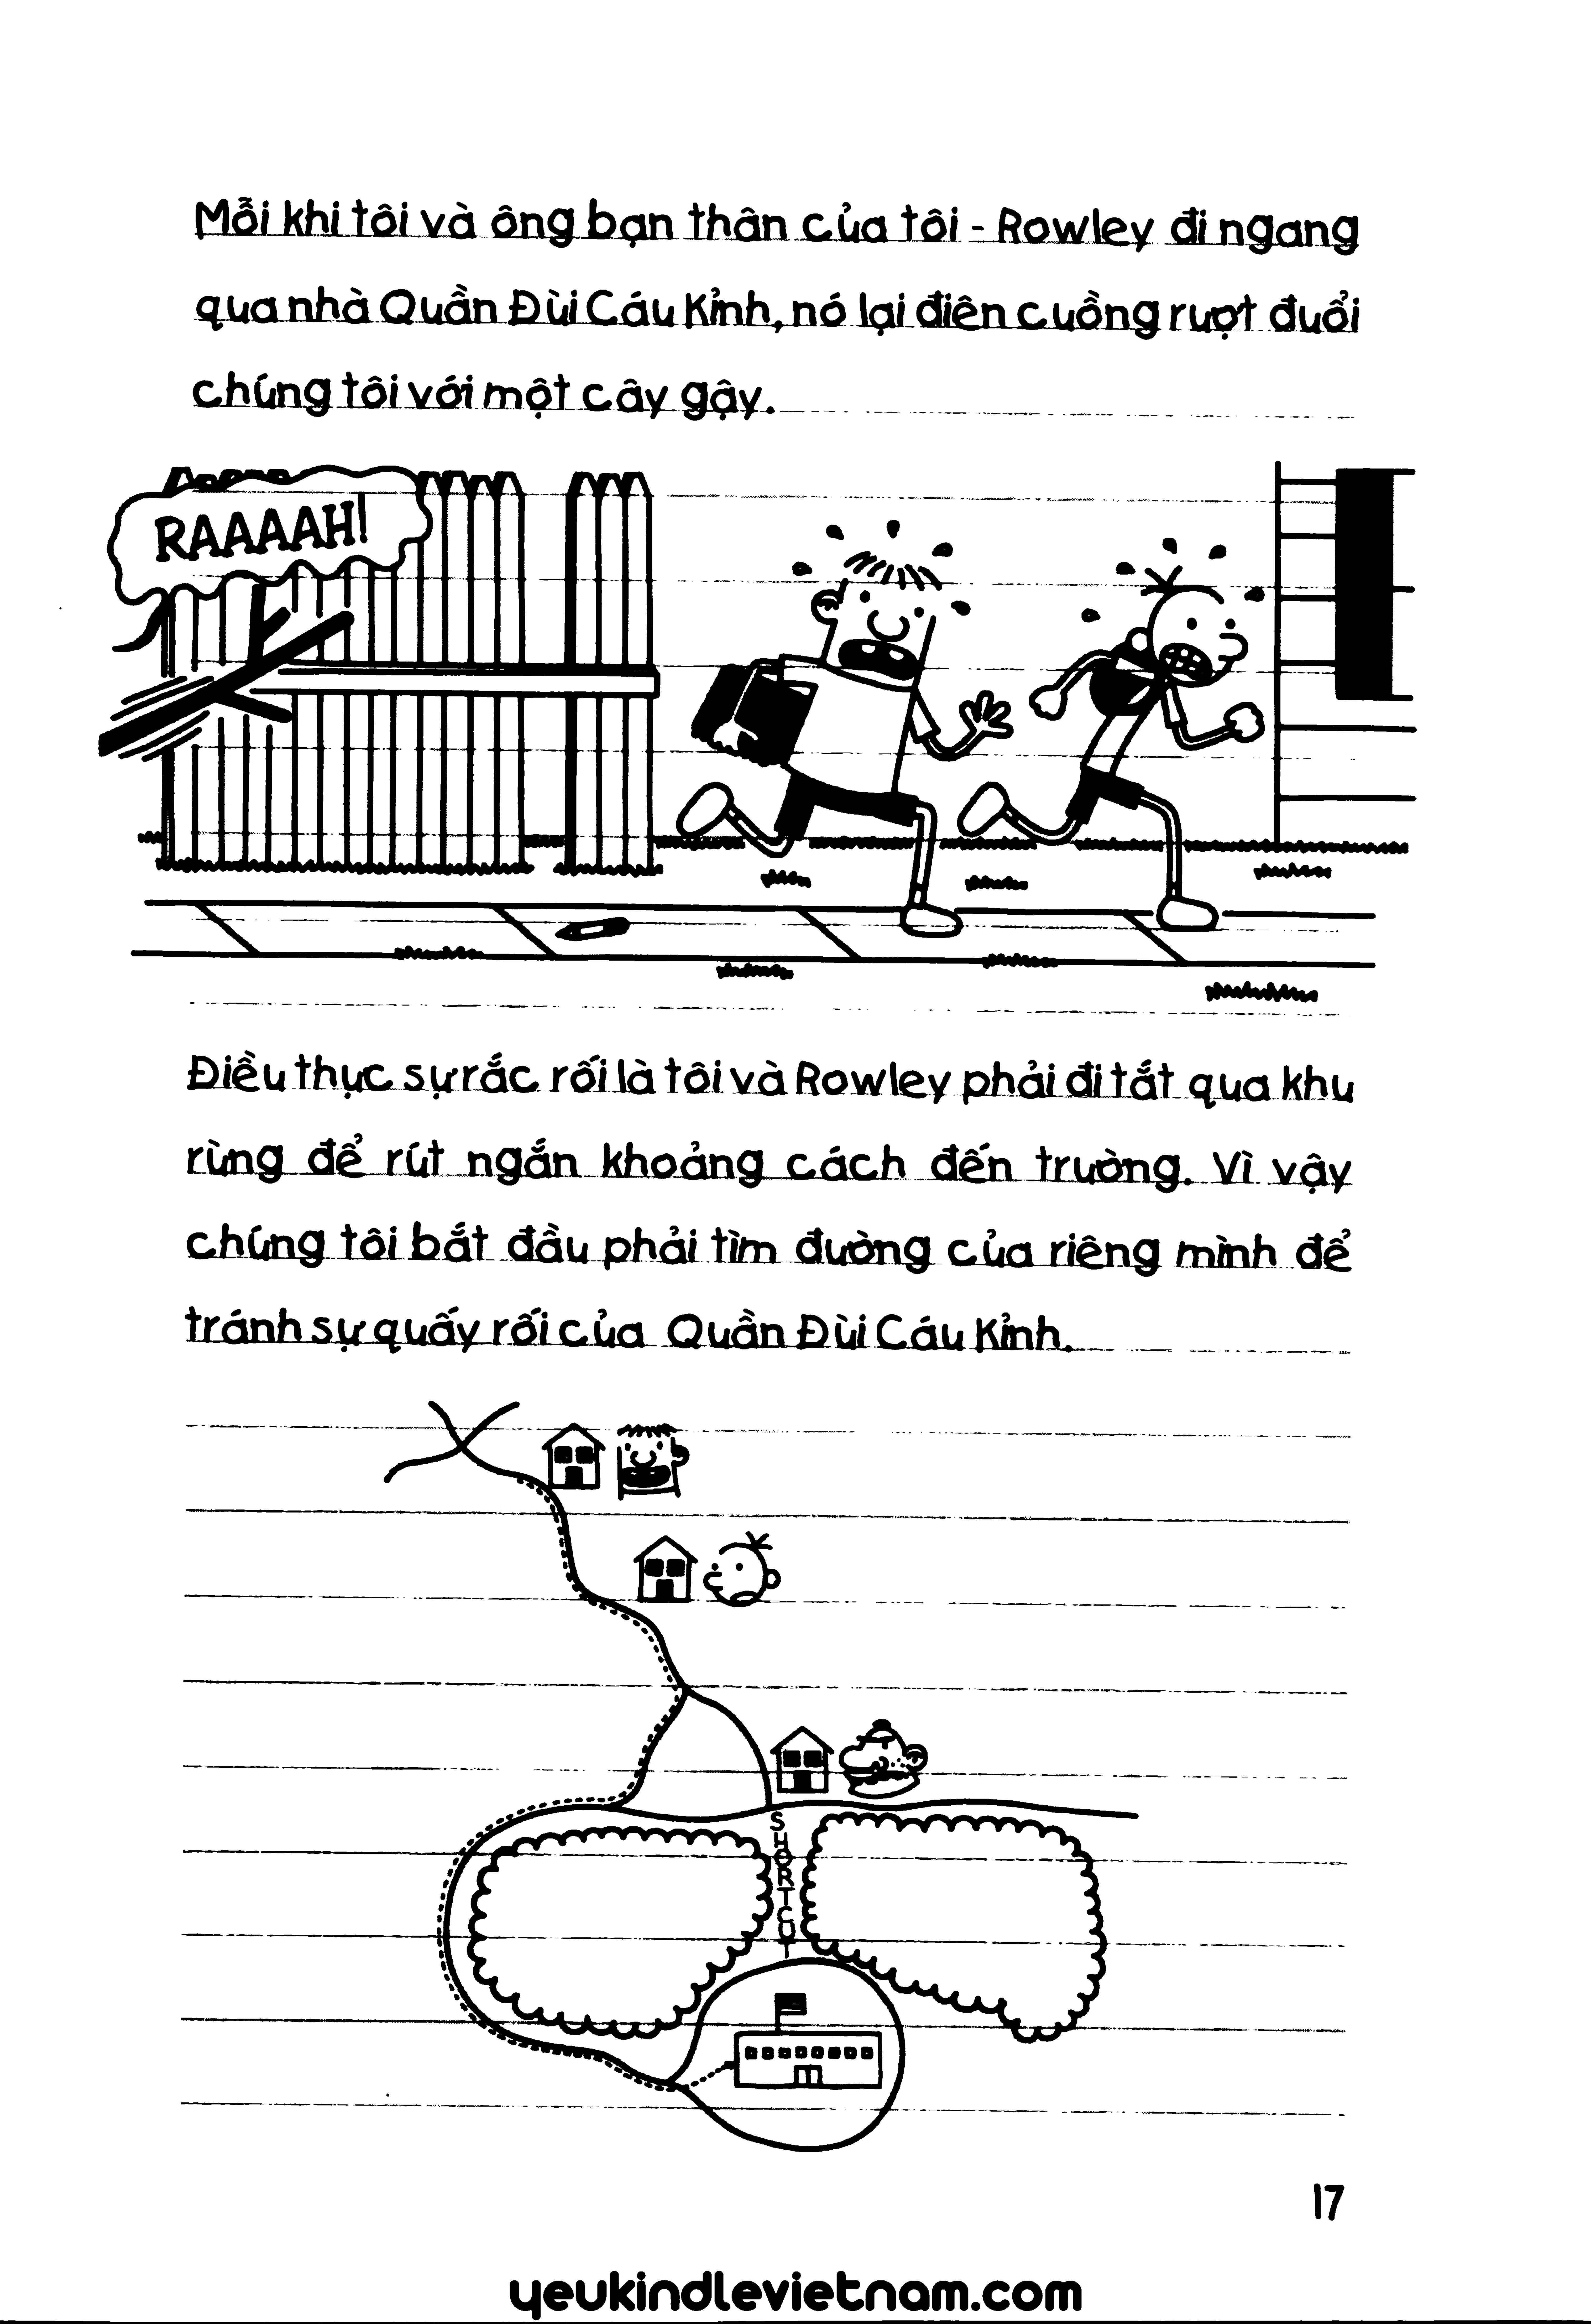 Mỗi khi tôi và ông bạn thân của tôi - Rowley đi ngang
qua nhà Quần Đùi Cáu Kỉnh, nó lại điên cuồng rượt đuổi
chúng tôi với một cây gậy.
RAAAAH!
Điều thực sự rắc rối là tôi và Rowley phải đi tắt qua khu
rừng để rút ngắn khoảng cách đến trường. Vì vậy
chúng tôi bắt đầu phải tìm đường của riêng mình để
tránh sự quấy rối của Quần Đùi Cáu Kỉnh.
SHORTCUT
17
yeukindlevietnam.com